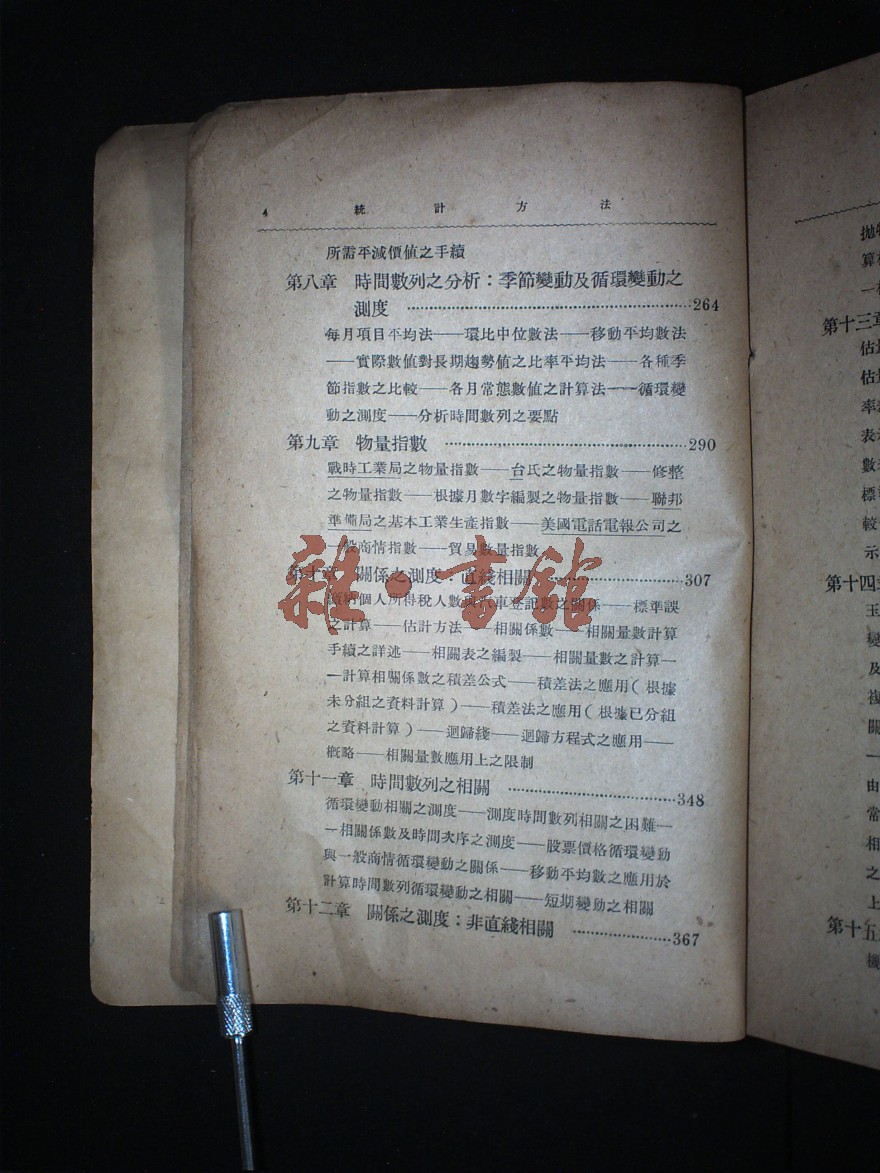 4 統計方法
所需平減價值之手續
第八章 時間數列之分析：季節變動及循環變動之
測度 ……………………………………264
每月項目平均法——環比中位數法——移動平均數法
——實際數値對長期趨勢値之比率平均法——各種季
節指數之比較——各月常態數値之計算法——循環變
動之測度——分析時間數列之要點
第九章 物量指數 ……………………………290
戰時工業局之物量指數——台氏之物量指數——修整
之物量指數——根據月數字編製之物量指數——聯邦
準備局之基本工業生產指數——美國電話電報公司之
一般商情指數——貿易數量指數
第十章 關係之測度：直綫相關 ………………307
繳納個人所得稅人數與汽車登記數之關係——標準誤
之計算——估計方法——相關係數——相關量數計算
手續之詳述——相關表之編製——相關量數之計算—
—計算相關係數之積差公式——積差法之應用（根據
未分組之資料計算）——積差法之應用（根據已分組
之資料計算）——迴歸綫——迴歸方程式之應用——
概略——相關量數應用上之限制
第十一章 時間數列之相關 ……………………348
循環變動相關之測度——測度時間數列相關之困難—
—相關係數及時間次序之測度——股票價格循環變動
與一般商情循環變動之關係——移動平均數之應用於
計算時間數列循環變動之相關——短期變動之相關
第十二章 關係之測度：非直綫相關 ……………367
雜·書館
拋
算
一
第十三章
估
估
率
表
數
標
較
示
第十四
玉
變
及
複
關
一
由
常
相
之
上
第十五
機